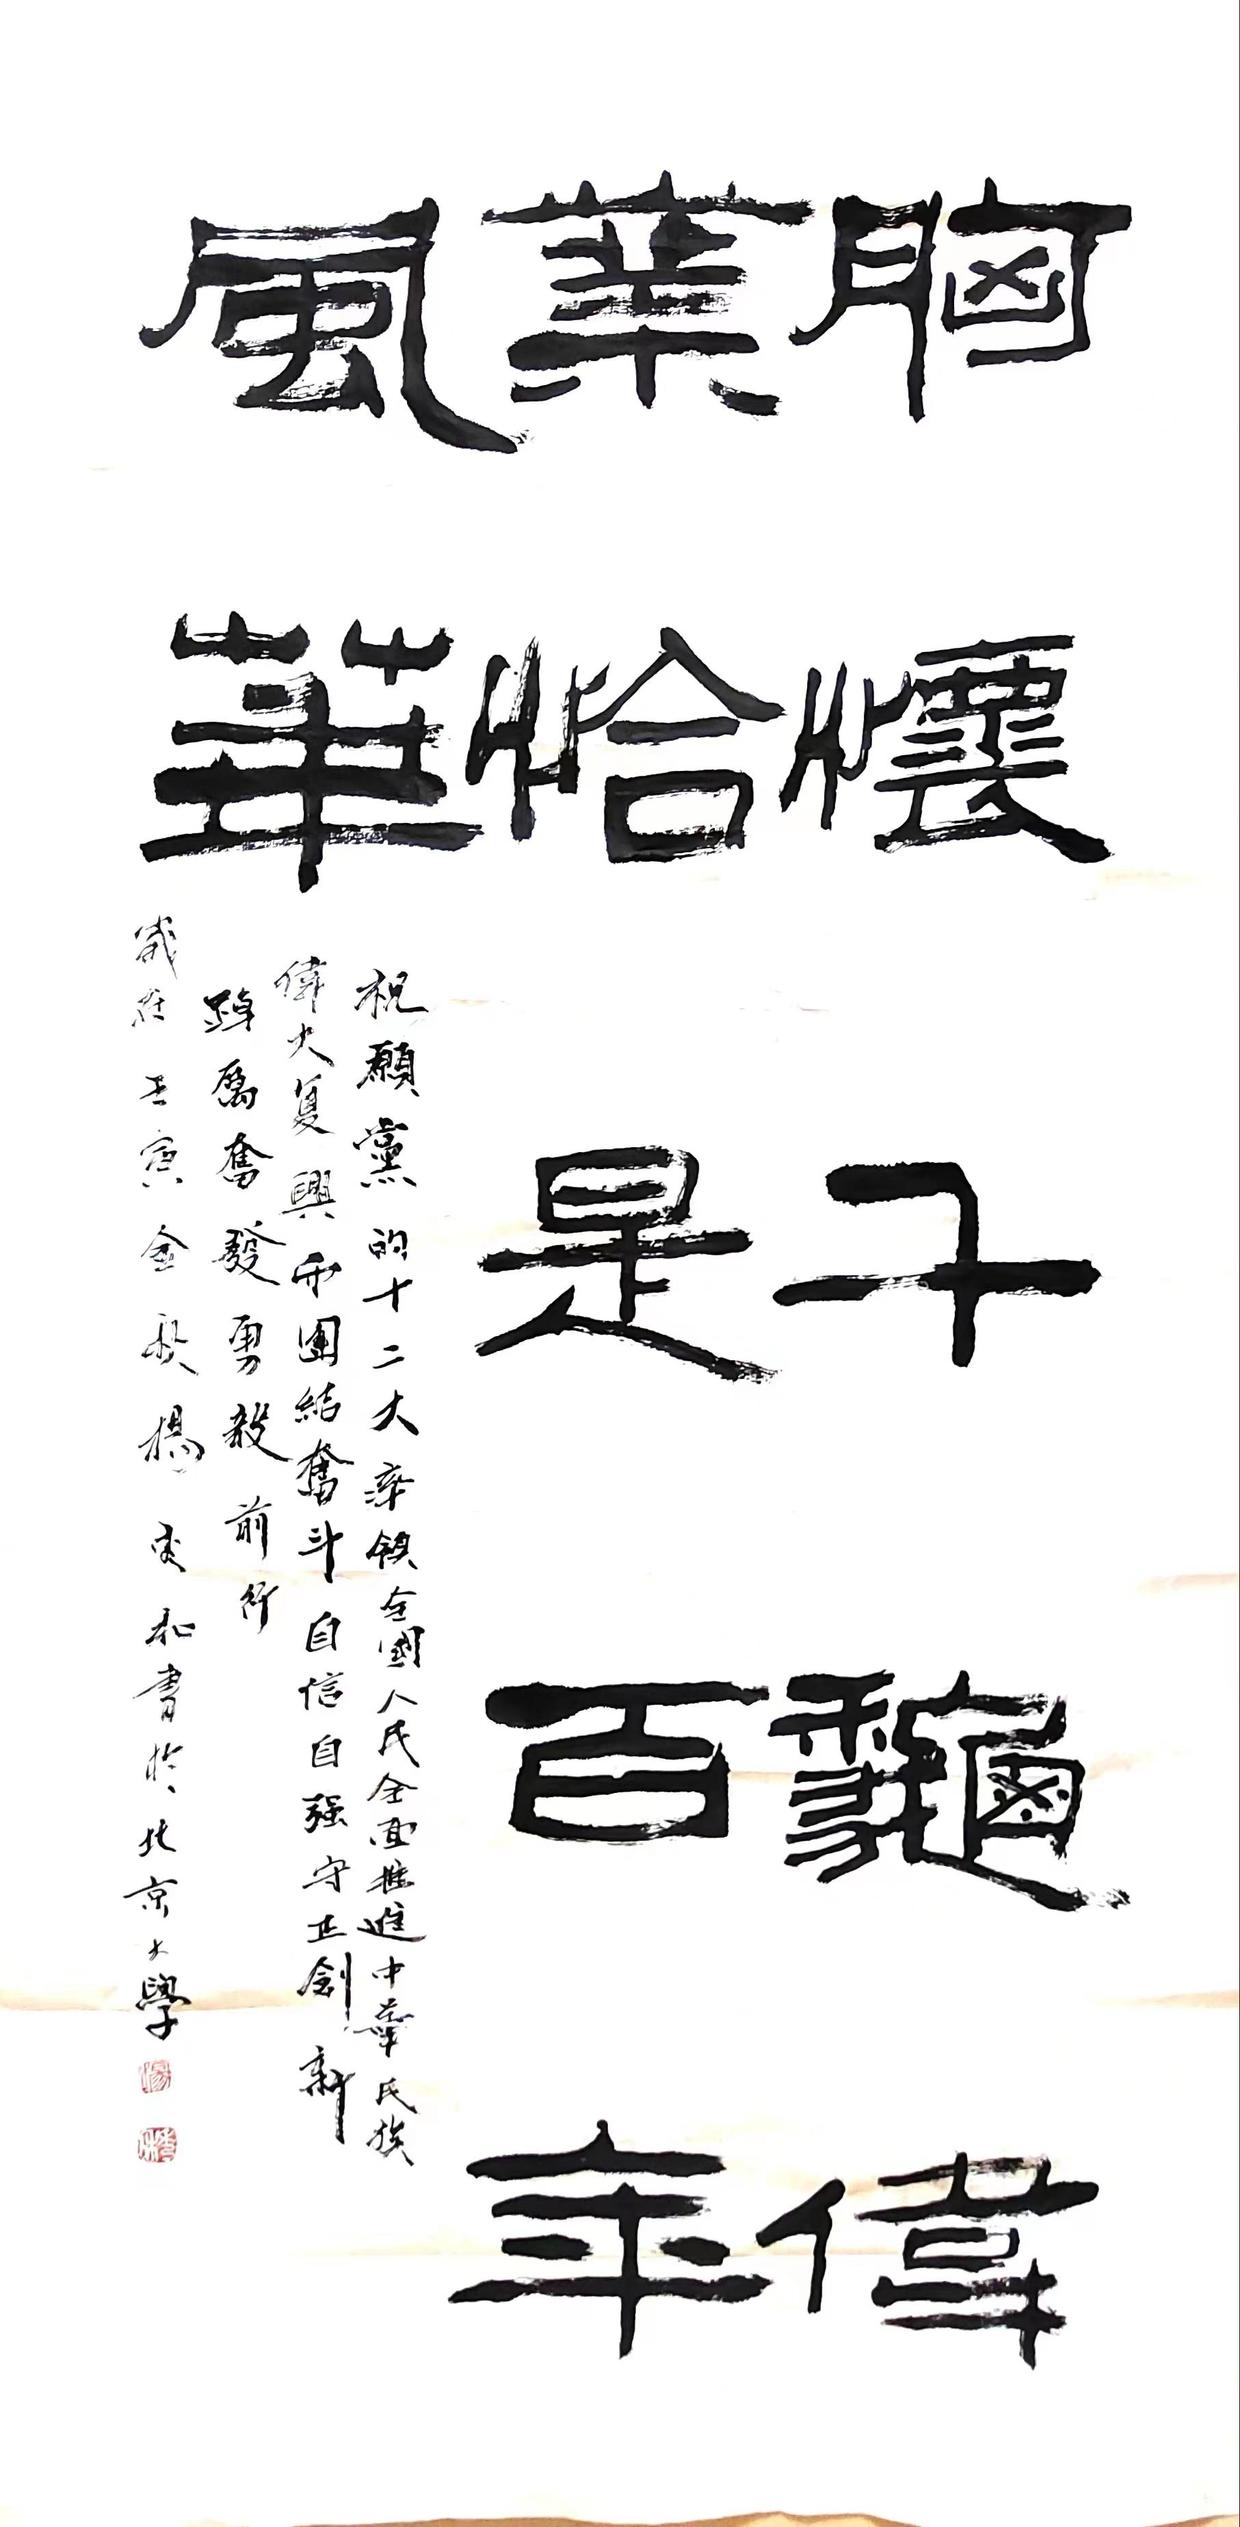 胸懷千龝偉
業恰是百年
風華
祝願黨的十二大率領全國人民全面推進中華民族
偉大復興而團結奮斗自信自强守正創新
踔厲奮發勇毅前行
歲在壬寅金秋楊奕和書於北京大學